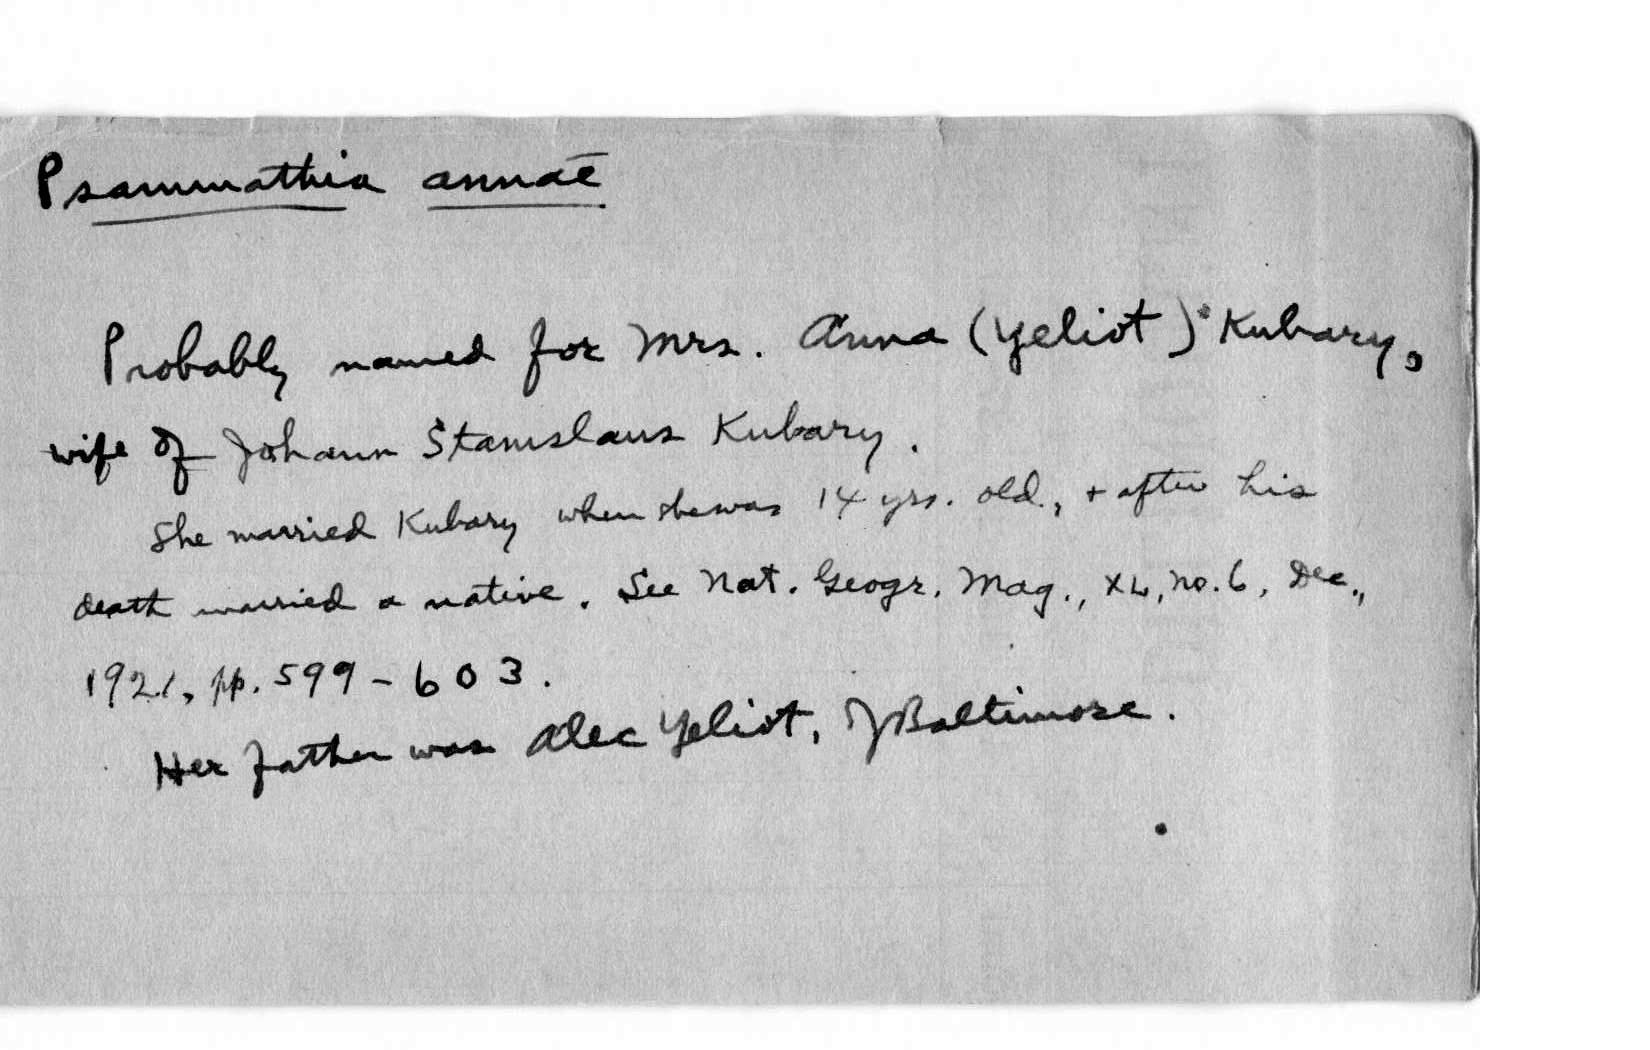 Psammathia annae
Probably named for Mrs. Anna (Yeliot) Kubary,
wife of Johann Stanislaus Kubary.
She married Kubary when she was 14 yrs. old, + after his
death married a native. See Nat. Geogr. Mag., XL, no. 6, Dec.,
1921, pp. 599-603.
Her father was Alec Yeliot, of Baltimore.